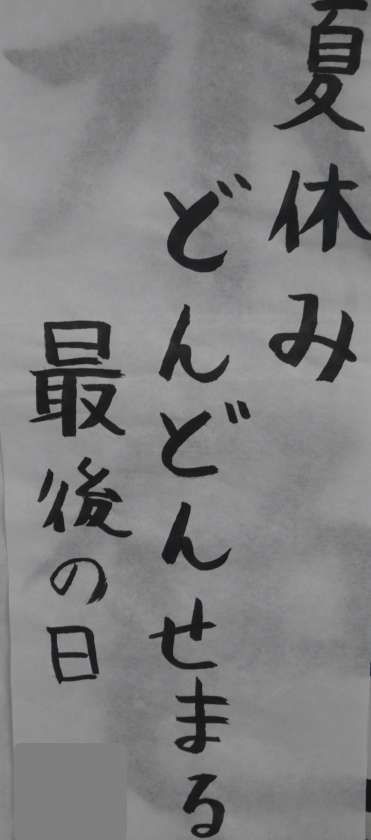 夏休み
どんどんせまる
最後の日